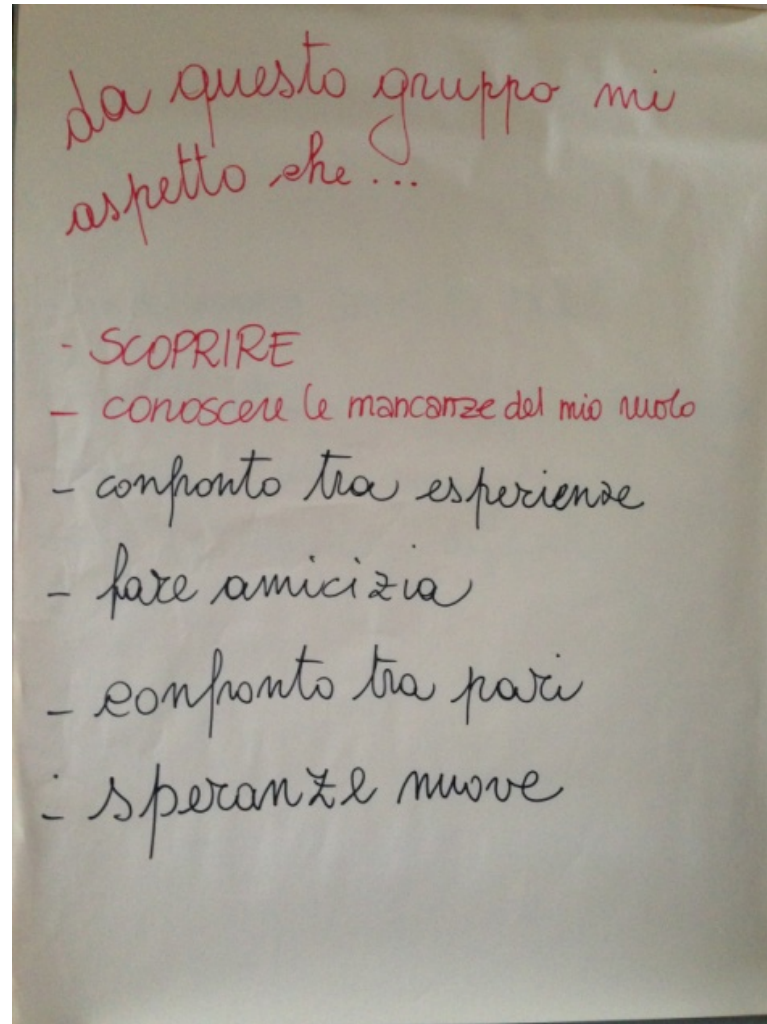 da questo gruppo mi
aspetto che...
- SCOPRIRE
- conoscere le mancanze del mio ruolo
- confronto tra esperienze
- fare amicizia
- confronto tra pari
- speranze nuove